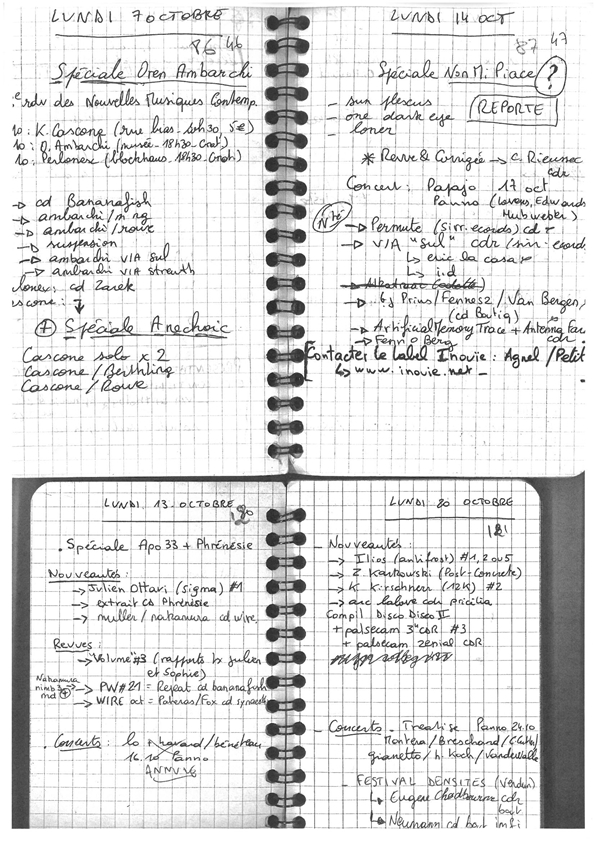 LUNDI 7 OCTOBRE
86 46
Spéciale Oren Ambarchi
e rdv des Nouvelles Musiques Contemp.
10: K. Cascone (rue bias - 20h30, 5€)
10: O. Ambarchi (musée - 18h30 - Gnat)
10: Perlonex (blockhaus - 18h30 - Gnat)
→ cd Bananafish
→ ambarchi/m ng
→ ambarchi/rowe
→ suspension
→ ambarchi VIA sul
→ ambarchi VIA streuth
lonex: cd Zarek
ascone:
+ Spéciale Anechoic
Cascone solo x 2
Cascone/Berthling
Cascone/Rowe
LUNDI 14 OCT
87 47
Spéciale Non Mi Piace ?
REPORTE
- sun plexus
- one dark eye
- loner
* Revue & Corrigée → c. Rieussec
cdr
Concert: Papajo 17 oct
Panno (Lovens, Edwards
Hubweber)
Nté
→ Permute (sirr.ecords) cd
→ V/A "sul" cdr/sirr-ecords
↳ eric la casa
↳ iid
→ Gj Prins/Fennesz/Van Bergen,
(cd Boutiq)
→ Artificial Memory Trace + Antenna Far
cdr
→ Fenn o Berg
Contacter le label Inouie: Agnel/Petit
↳ www.inouie.net -
LUNDI 13 OCTOBRE
120
. Spéciale Apo 33 + Phrénésie
Nouveautés:
→ Julien Ottavi (sigma) #1
→ extrait CD Phrénésie
→ muller/nakamura cd wire,
Revues:
→ "Volume" #3 (rapports by Julien
et Sophie)
Nakamura
nimb 3
md +
→ PW #21 = Repeat cd bananafish
→ WIRE oct = Pateras/Fox cd synaesth
. Concerts: lo Ahavard/bénéteau
16.10 Panno
ANNULÉ
LUNDI 20 OCTOBRE
121
- Nouveautés:
→ Ilios (antifrost) #1, 2 ou 5
→ Z. Karkowski (Post-Concrete)
→ K Kirschner (12K) #2
→ arc lalove cdr pricilia
Compil Disco Disco II
+ palsecam 3" CDR #3
+ palsecam zenial CDR
- Concerts - Treatise Panno 24.10
Montera/Breschand/
gianetto/h. Koch/Vandewalle
- FESTIVAL DENSITES (Verdun)
↳ Eugene Chadbourne cdr
bait
↳ Neumann cd bait imfi